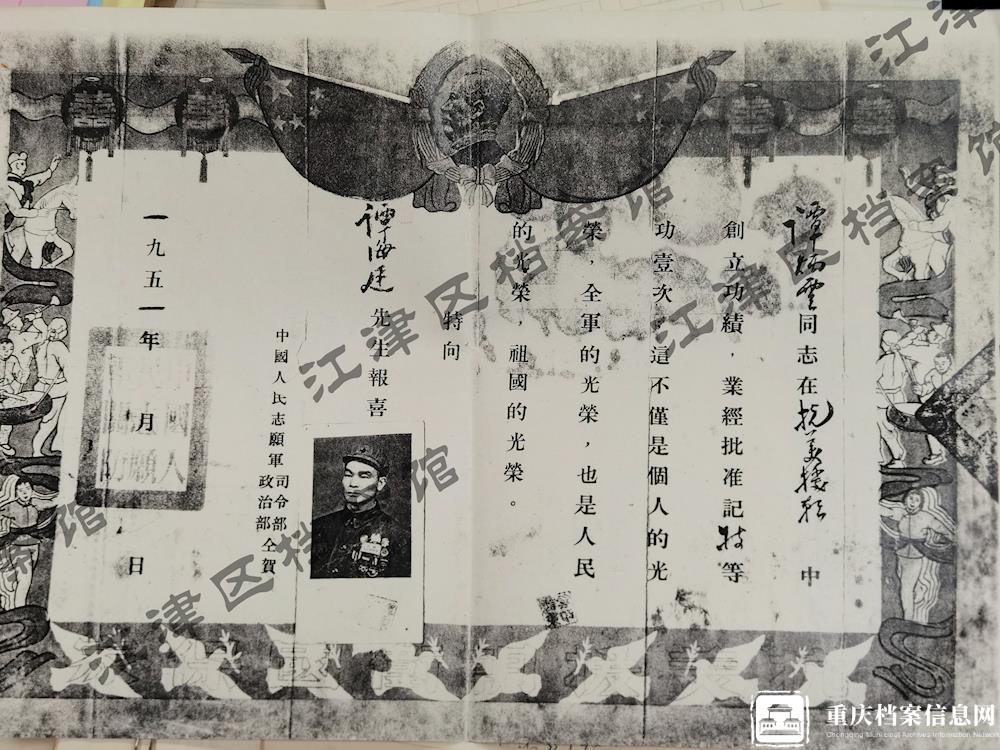 譚炳雲同志在抗美援朝中
創立功績，業經批准記特等
功壹次，這不僅是個人的光
榮，全軍的光榮，也是人民
的光榮，祖國的光榮。
特向
譚海廷先生報喜
中國人民志願軍司令部政治部仝賀
一九五一年 月 日
抗美援朝保家衛國
江津区档案馆
江津区档案馆
江津区档案馆
江津区档案馆
重庆档案信息网
Chongqing Municipal Archives Information Network